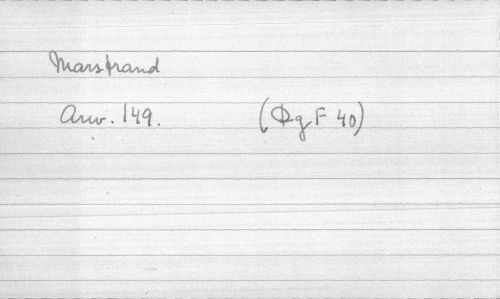 Marstrand
Anv. 149. (Dg F 40)